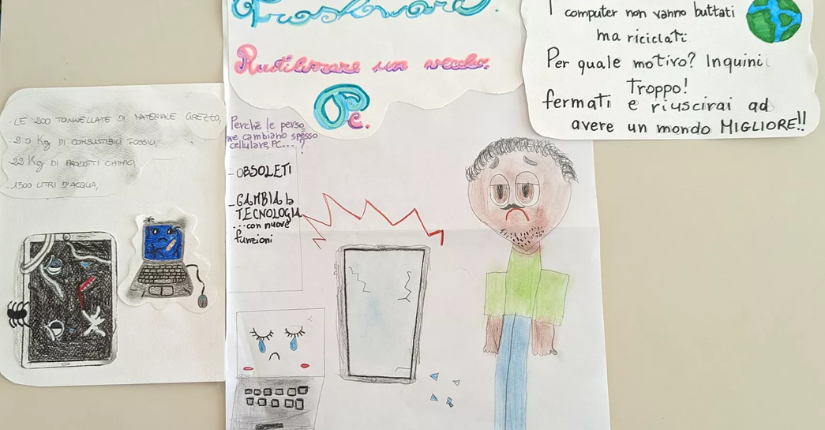 Trashware.
Riutilizzare un vecchio
Pc.
I computer non vanno buttati
ma riciclati
Per quale motivo? Inquini
Troppo!
fermati e riuscirai ad
avere un mondo MIGLIORE!!
Perchè le perso
ne cambiano spesso
cellulare, PC...?
- OBSOLETI
- CAMBIA la
TECNOLOGIA
...con nuove
funzioni
- LE 200 TONNELLATE DI MATERIALE GREZZO,
Kg DI COMBUSTIBILI FOSSILI,
22 Kg DI PRODOTTI CHIMICI,
1500 LITRI D'ACQUA,